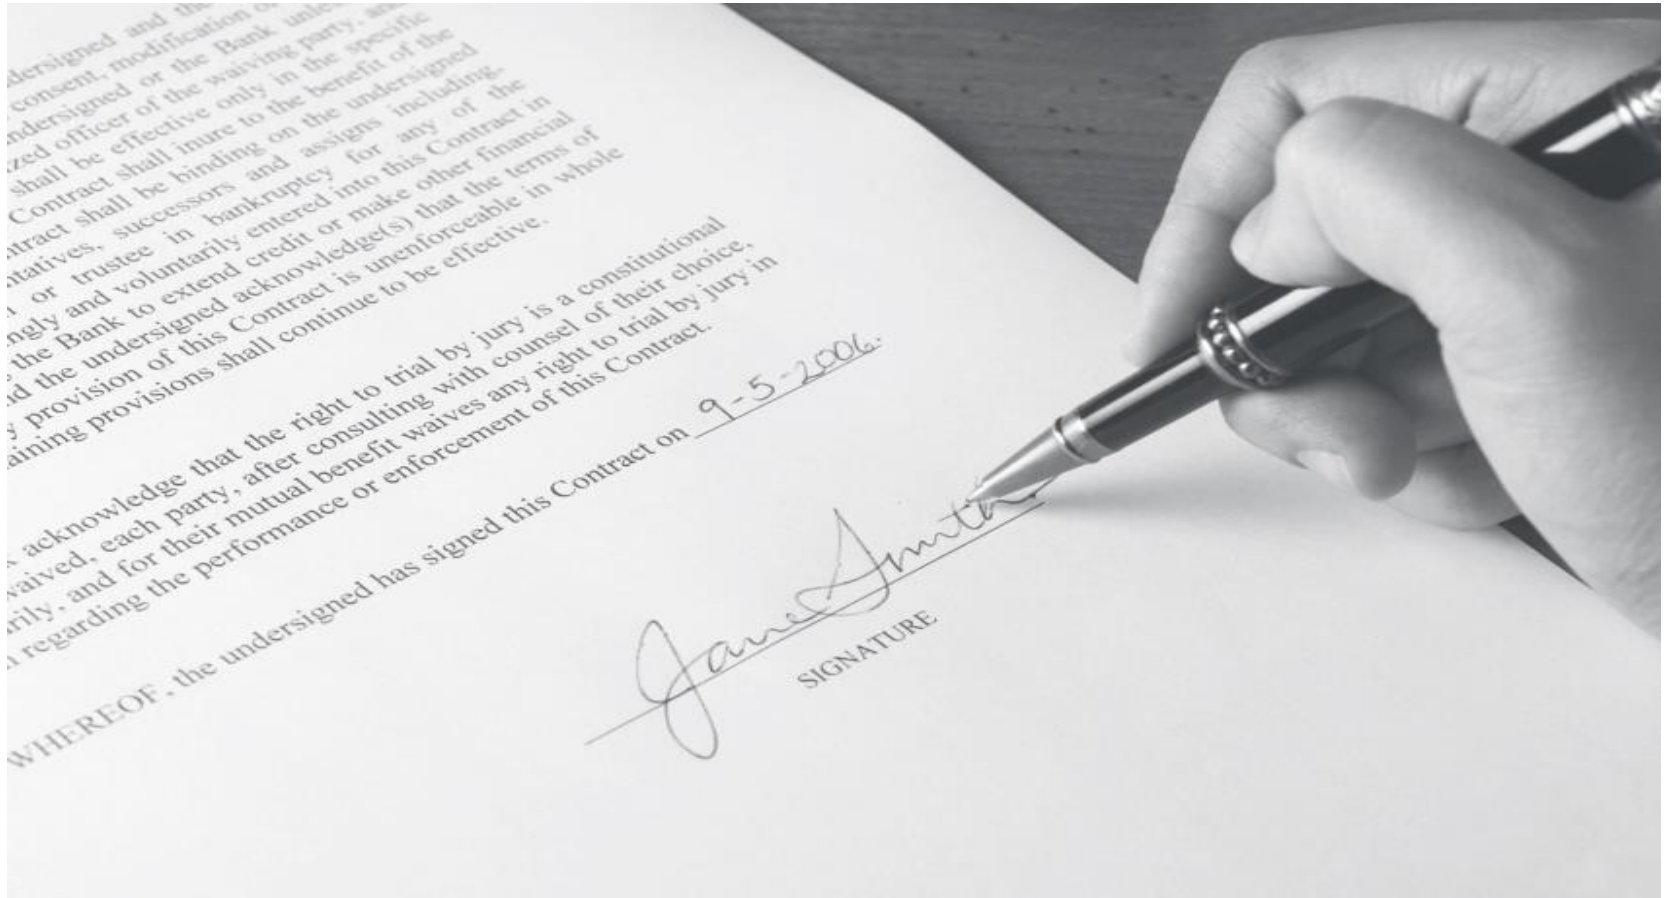 undersigned and the
consent, modification o
ndersigned or the Bank unles
zed officer of the waiving party, and
shall be effective only in the specific
Contract shall inure to the benefit of the
ntract shall be binding on the undersigned
ntatives, successors and assigns including,
or trustee in bankruptcy for any of the
ngly and voluntarily entered into this Contract in
the Bank to extend credit or make other financial
d the undersigned acknowledge(s) that the terms of
y provision of this Contract is unenforceable in whole
aining provisions shall continue to be effective.
acknowledge that the right to trial by jury is a constitutional
waived, each party, after consulting with counsel of their choice,
rily, and for their mutual benefit waives any right to trial by jury in
regarding the performance or enforcement of this Contract.
WHEREOF, the undersigned has signed this Contract on 9-5-2006.
Jane Smith
SIGNATURE